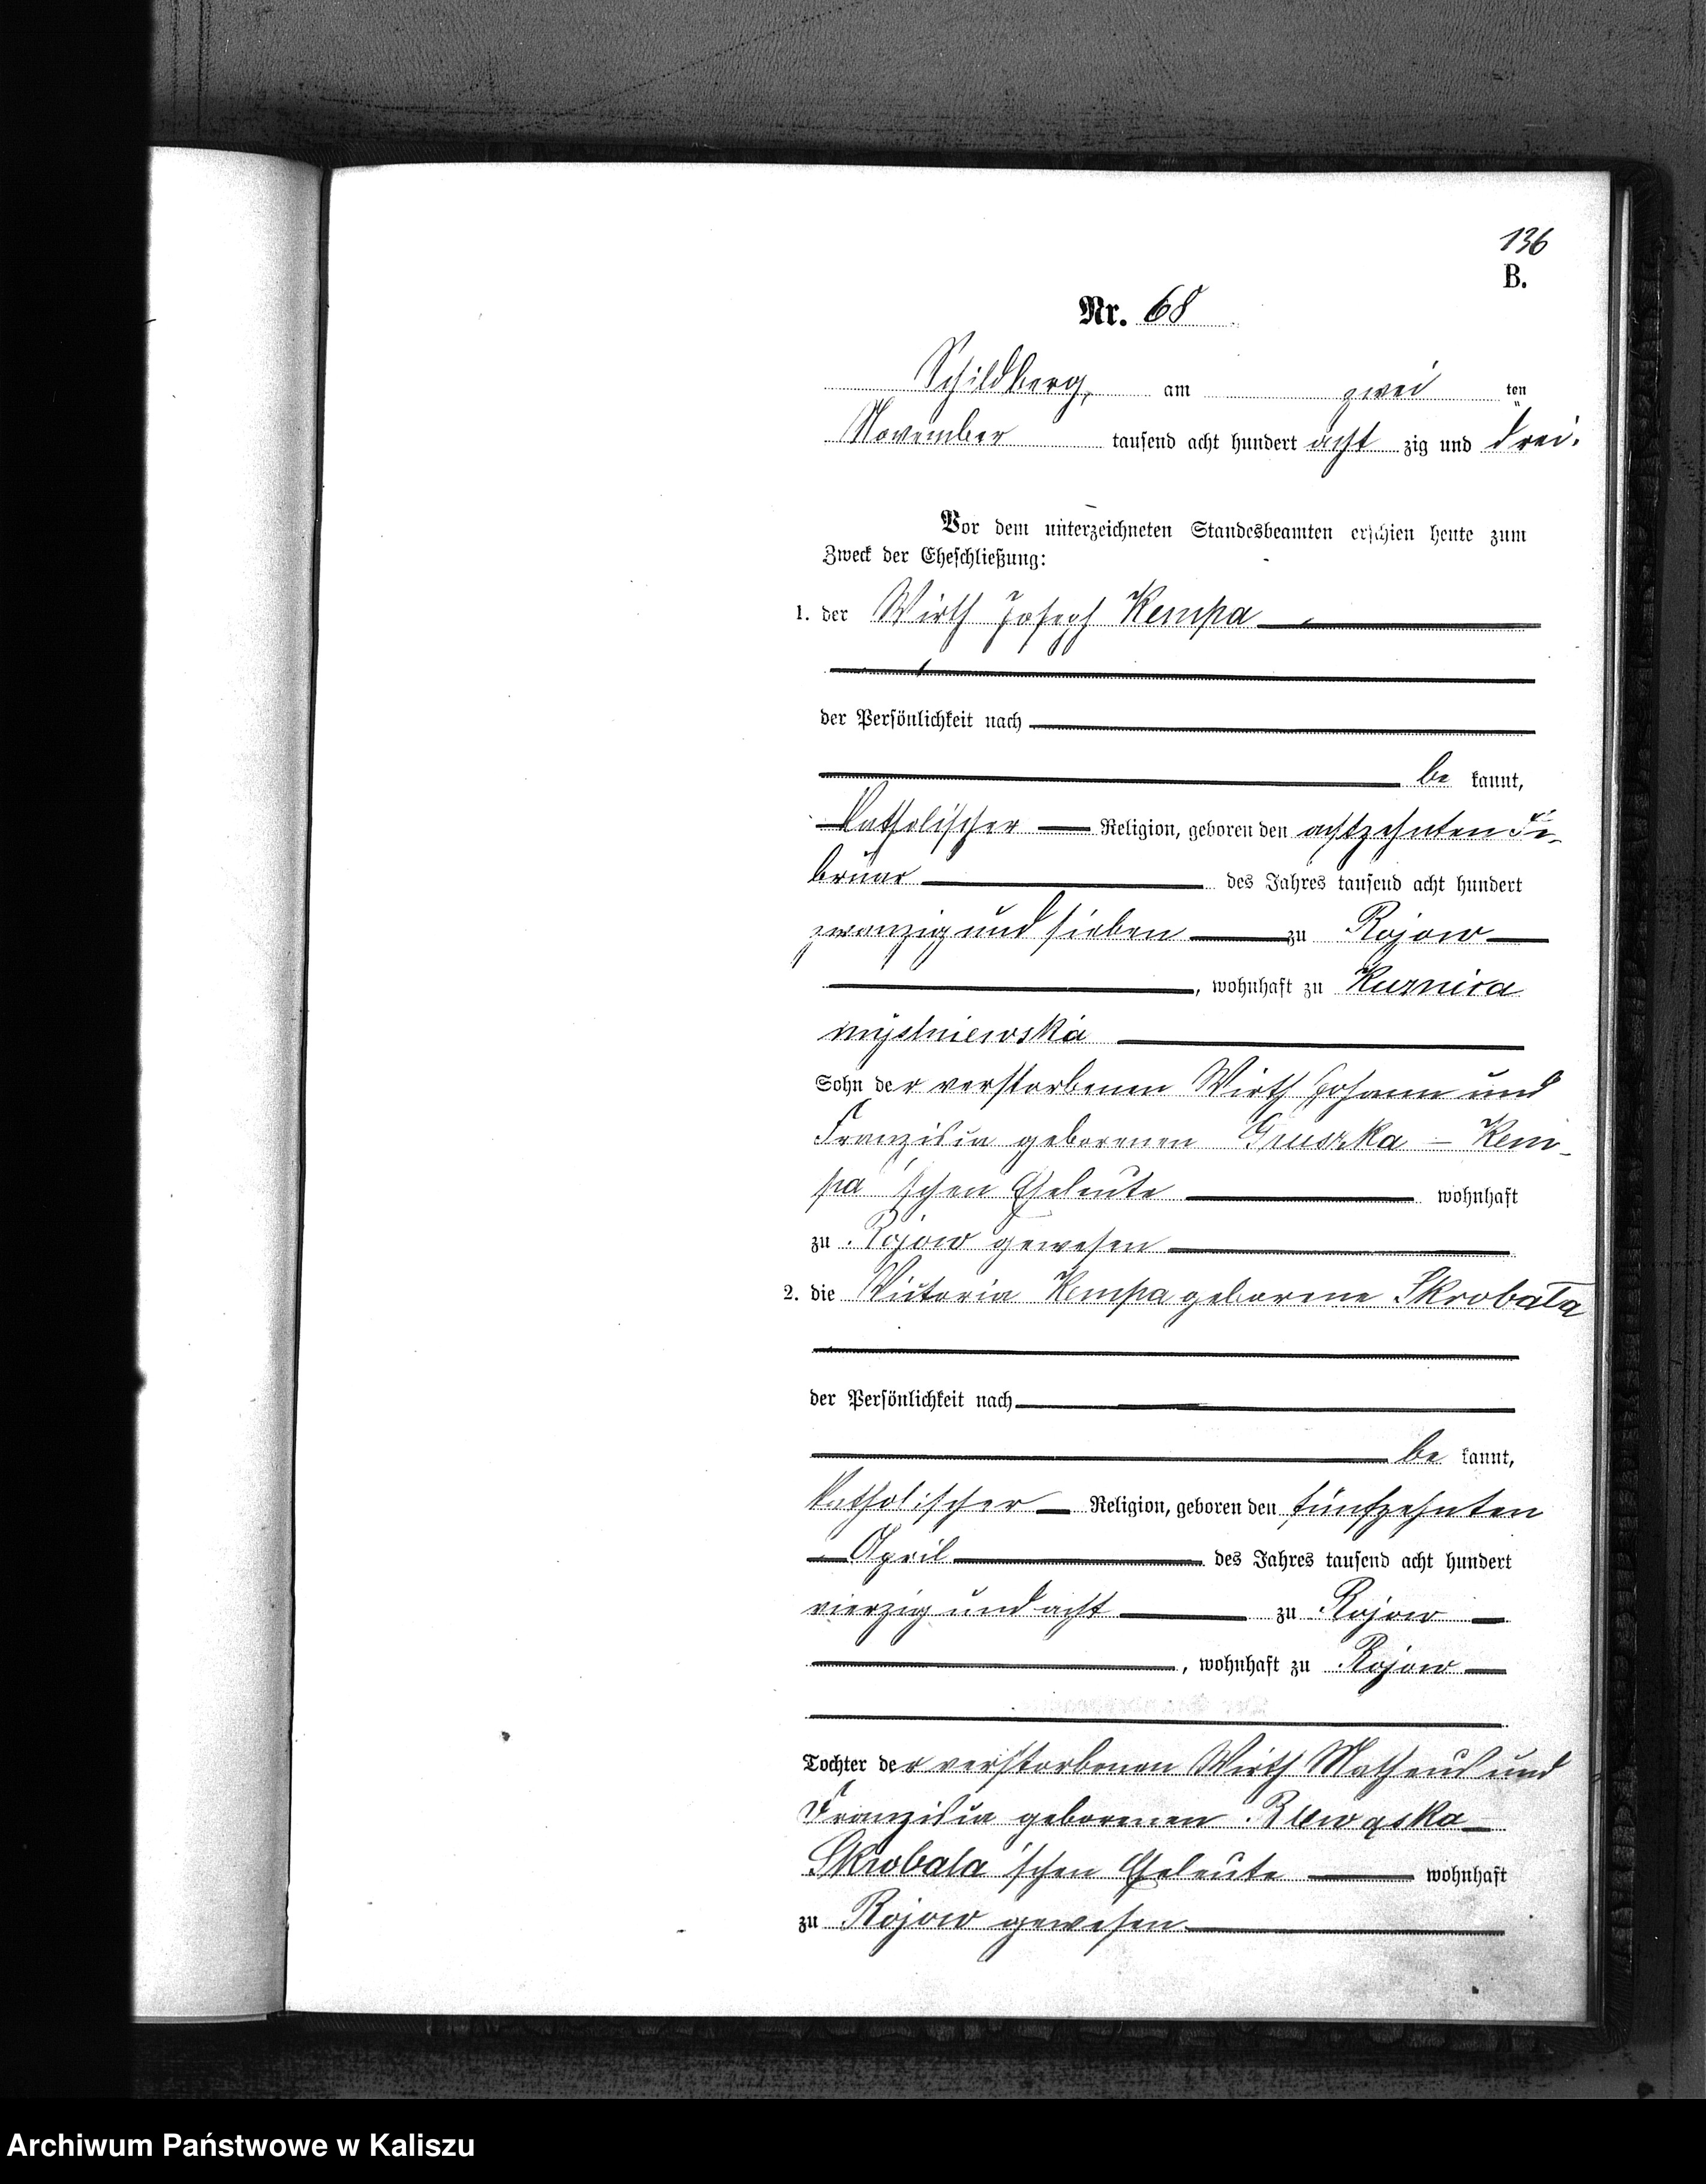 136
B.
Nr. 68
Schildberg, am zwei ten
November tausend acht hundert acht zig und drei.
Vor dem unterzeichneten Standesbeamten erschien heute zum
Zweck der Eheschließung:
1. der Wirth Joseph Kempa
der Persönlichkeit nach
be kannt,
katholischer Religion, geboren den achtzehnten Fe-
bruar des Jahres tausend acht hundert
zwanzig und sieben zu Rojow
, wohnhaft zu Kuznica
myslniewska
Sohn der verstorbenen Wirth Johann und
Franziska geborenen Gruszka - Kem-
pa'schen Eheleute wohnhaft
zu Rojow gewesen
2. die Victoria Kempa geborene Skrobala
der Persönlichkeit nach
be kannt,
katholischer Religion, geboren den fünfzehnten
April des Jahres tausend acht hundert
vierzig und acht zu Rojow
, wohnhaft zu Rojow
Tochter der verstorbenen Wirth Matheus und
Franziska geborenen
Skrobala'schen Eheleute wohnhaft
zu Rojow gewesen
Archiwum Państwowe w Kaliszu